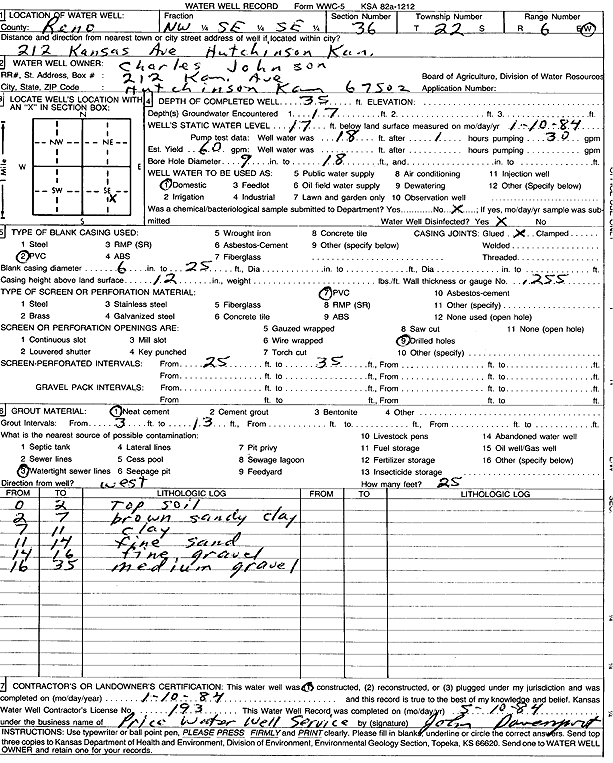 WATER WELL RECORD Form WWC-5 KSA 82a-1212
1 LOCATION OF WATER WELL: Fraction Section Number Township Number Range Number
County: Reno NW ¼ SE ¼ SE ¼ 36 T 22 S R 6 E/W
Distance and direction from nearest town or city street address of well if located within city?
212 Kansas Ave Hutchinson Kan.
2 WATER WELL OWNER: Charles Johnson
RR#, St. Address, Box # : 212 Kan. Ave Board of Agriculture, Division of Water Resources
City, State, ZIP Code : Hutchinson Kan 67502 Application Number:
3 LOCATE WELL'S LOCATION WITH AN "X" IN SECTION BOX:
N
NW NE
W E
SW SE
X
S
1 Mile
4 DEPTH OF COMPLETED WELL 35 ft. ELEVATION:
Depth(s) Groundwater Encountered 1 17 ft. 2 ft. 3 ft.
WELL'S STATIC WATER LEVEL 17 ft. below land surface measured on mo/day/yr 1-10-84
Pump test data: Well water was 18 ft. after 1 hours pumping 30 gpm
Est. Yield 60 gpm: Well water was ft. after hours pumping gpm
Bore Hole Diameter 9 in. to 18 ft., and in. to ft.
WELL WATER TO BE USED AS: 5 Public water supply 8 Air conditioning 11 Injection well
1 Domestic 3 Feedlot 6 Oil field water supply 9 Dewatering 12 Other (Specify below)
2 Irrigation 4 Industrial 7 Lawn and garden only 10 Observation well
Was a chemical/bacteriological sample submitted to Department? Yes No X ; If yes, mo/day/yr sample was sub-
mitted Water Well Disinfected? Yes X No
5 TYPE OF BLANK CASING USED: 5 Wrought iron 8 Concrete tile CASING JOINTS: Glued X Clamped
1 Steel 3 RMP (SR) 6 Asbestos-Cement 9 Other (specify below) Welded
2 PVC 4 ABS 7 Fiberglass Threaded
Blank casing diameter 6 in. to 25 ft., Dia in. to ft., Dia in. to ft.
Casing height above land surface 12 in., weight lbs./ft. Wall thickness or gauge No. .255
TYPE OF SCREEN OR PERFORATION MATERIAL: 7 PVC 10 Asbestos-cement
1 Steel 3 Stainless steel 5 Fiberglass 8 RMP (SR) 11 Other (specify)
2 Brass 4 Galvanized steel 6 Concrete tile 9 ABS 12 None used (open hole)
SCREEN OR PERFORATION OPENINGS ARE: 5 Gauzed wrapped 8 Saw cut 11 None (open hole)
1 Continuous slot 3 Mill slot 6 Wire wrapped 9 Drilled holes
2 Louvered shutter 4 Key punched 7 Torch cut 10 Other (specify)
SCREEN-PERFORATED INTERVALS: From 25 ft. to 35 ft., From ft. to ft.
From ft. to ft., From ft. to ft.
GRAVEL PACK INTERVALS: From ft. to ft., From ft. to ft.
From ft. to ft., From ft. to ft.
6 GROUT MATERIAL: 1 Neat cement 2 Cement grout 3 Bentonite 4 Other
Grout Intervals: From 3 ft. to 13 ft., From ft. to ft., From ft. to ft.
What is the nearest source of possible contamination: 10 Livestock pens 14 Abandoned water well
1 Septic tank 4 Lateral lines 7 Pit privy 11 Fuel storage 15 Oil well/Gas well
2 Sewer lines 5 Cess pool 8 Sewage lagoon 12 Fertilizer storage 16 Other (specify below)
3 Watertight sewer lines 6 Seepage pit 9 Feedyard 13 Insecticide storage
Direction from well? west How many feet? 25
FROM TO LITHOLOGIC LOG FROM TO LITHOLOGIC LOG
0 2 Top soil
2 7 brown sandy clay
7 11 clay
11 14 fine sand
14 16 fine gravel
16 35 medium gravel
7 CONTRACTOR'S OR LANDOWNER'S CERTIFICATION: This water well was (1) constructed, (2) reconstructed, or (3) plugged under my jurisdiction and was
completed on (mo/day/year) 1-10-84 and this record is true to the best of my knowledge and belief. Kansas
Water Well Contractor's License No. 193 This Water Well Record was completed on (mo/day/yr) 5-10-84
under the business name of Price Water Well Service by (signature) John Davenport
INSTRUCTIONS: Use typewriter or ball point pen, PLEASE PRESS FIRMLY and PRINT clearly. Please fill in blanks, underline or circle the correct answers. Send top
three copies to Kansas Department of Health and Environment, Division of Environment, Environmental Geology Section, Topeka, KS 66620. Send one to WATER WELL
OWNER and retain one for your records.